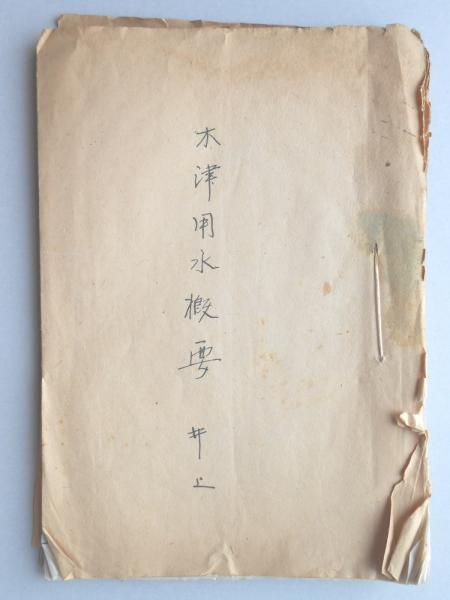 木津用水概要 井上